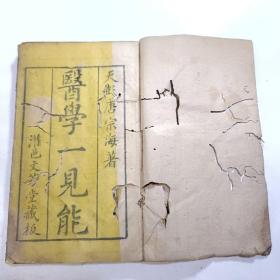 天彭唐宗海著
醫學一見能
邑文芳堂藏板